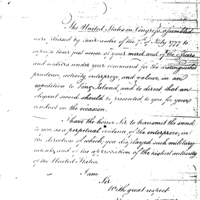 The United States in Congress assembled
were pleased by their order of the 25th of July 1777 to
express their just sense of your merit and of the officers
and soldiers under your command for the distinguished
prudence, activity enterprize, and valour, in an
expedition to Long Island, and to direct that an
elegant sword should be presented to you for your
conduct on the occasion.
I have the honor Sir to transmit the sword
to you, as a perpetual evidence of the enterprize, in
the direction of which you displayed such military
merit, and of its approbation of the highest authority
of the United States.
I am
Sir,
With great respect